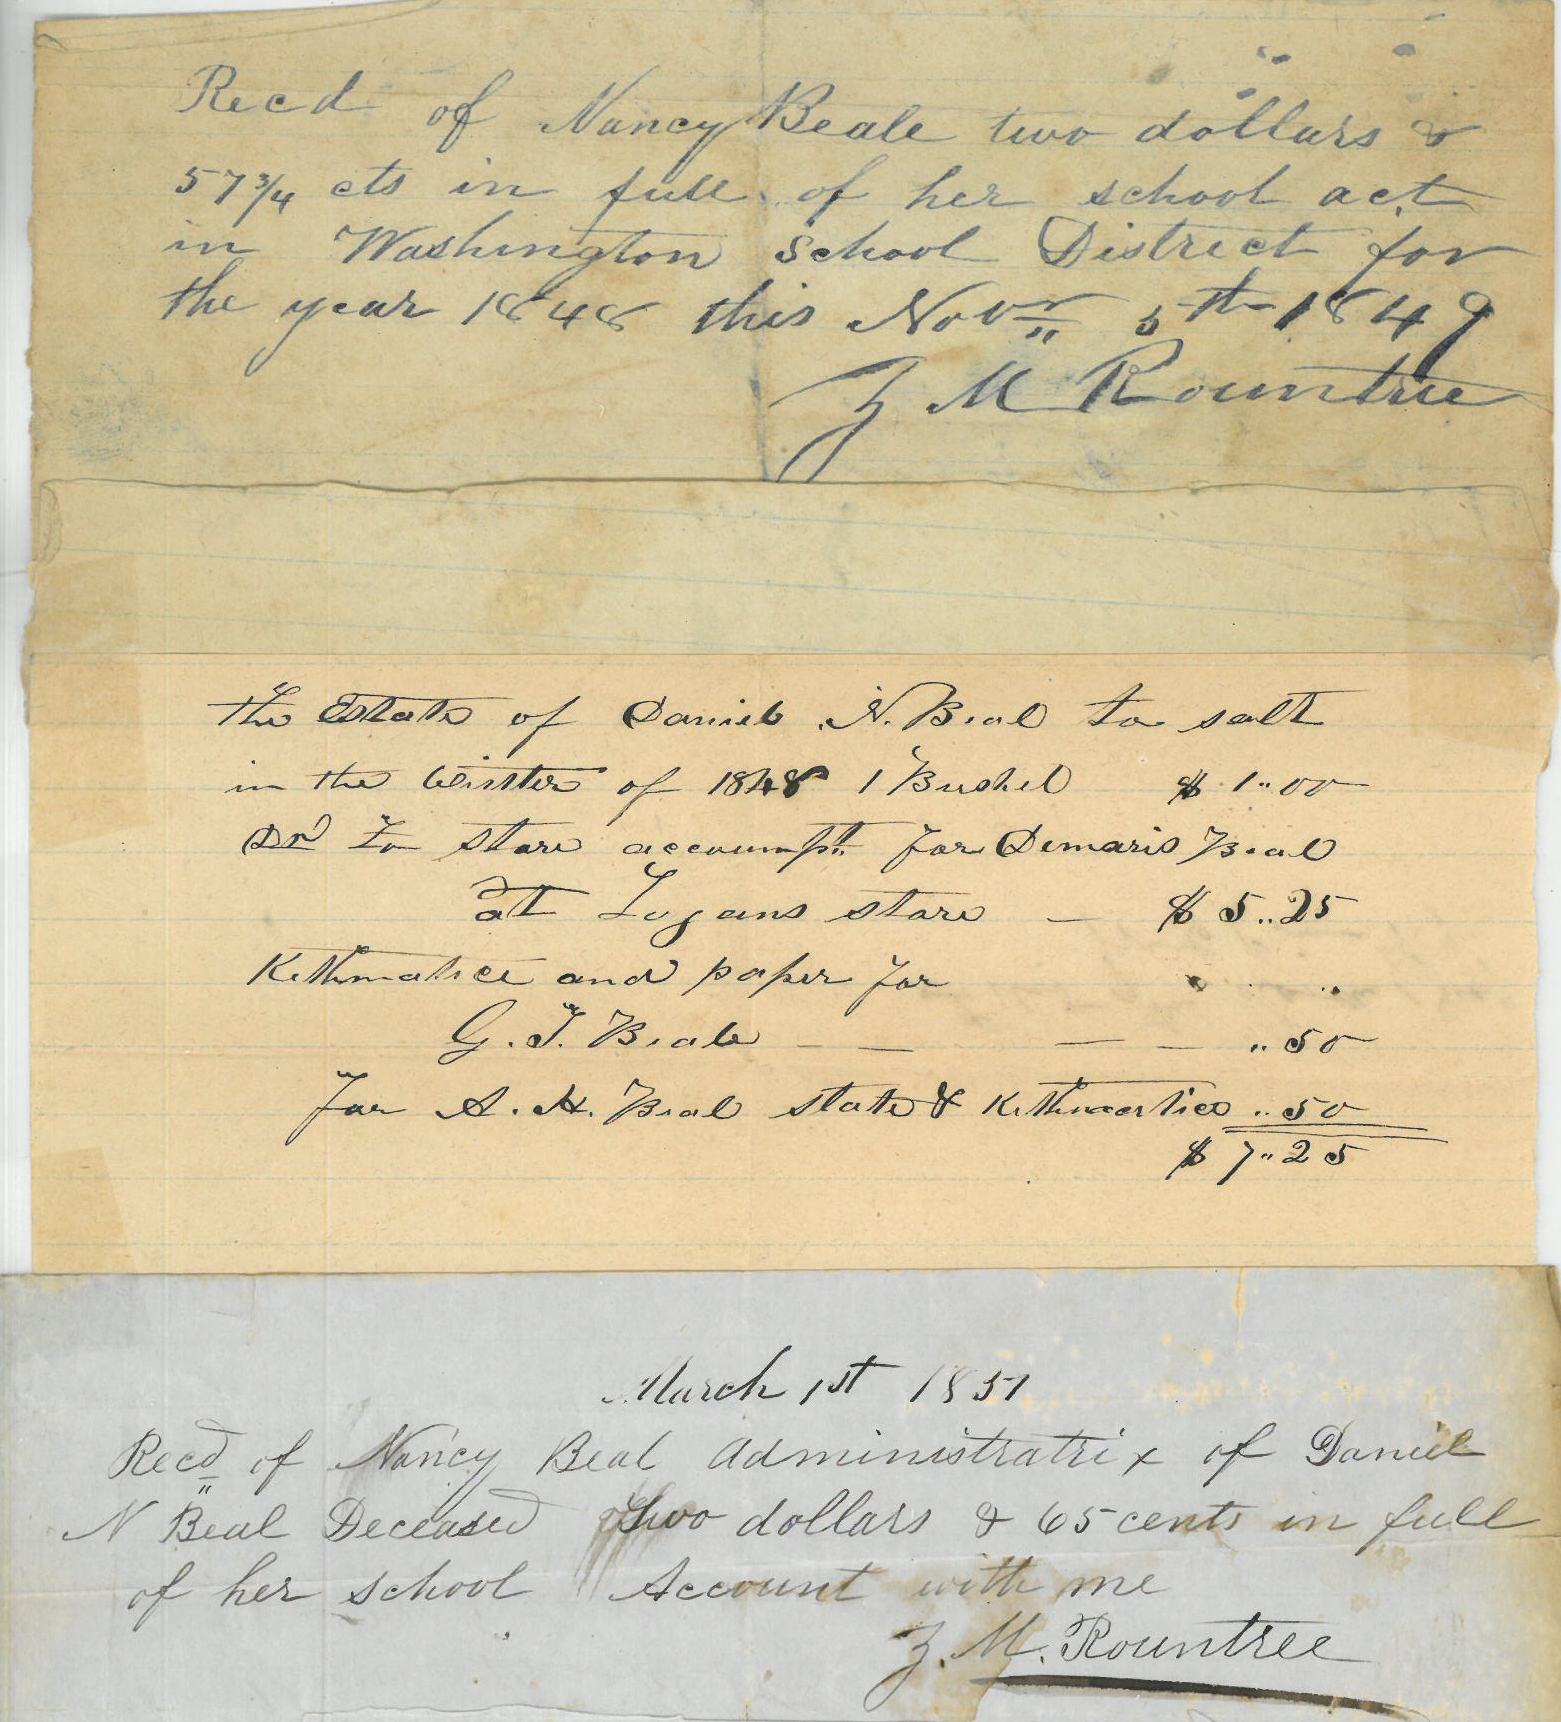 Recd of Nancy Beale two dollars &
57 3/4 cts in full of her school act
in Washington School District for
the year 1848 this Novr 5th 1849
Z M Rountree
The Estate of Daniel N. Beal to salt
in the Winter of 1848 1 Bushel $ 1..00
Dr to store accoumpt for Demaris Beal
at Logans store - $ 5..25
Rithmatice and paper for
G. T. Beale - - - - .. 50
for A. H. Beal slate & Rithmartice .. 50
$ 7..25
March 1st 1851
Recd of Nancy Beal Administratrix of Daniel
N Beal Deceased Two dollars & 65 cents in full
of her school Account with me
Z. M. Rountree